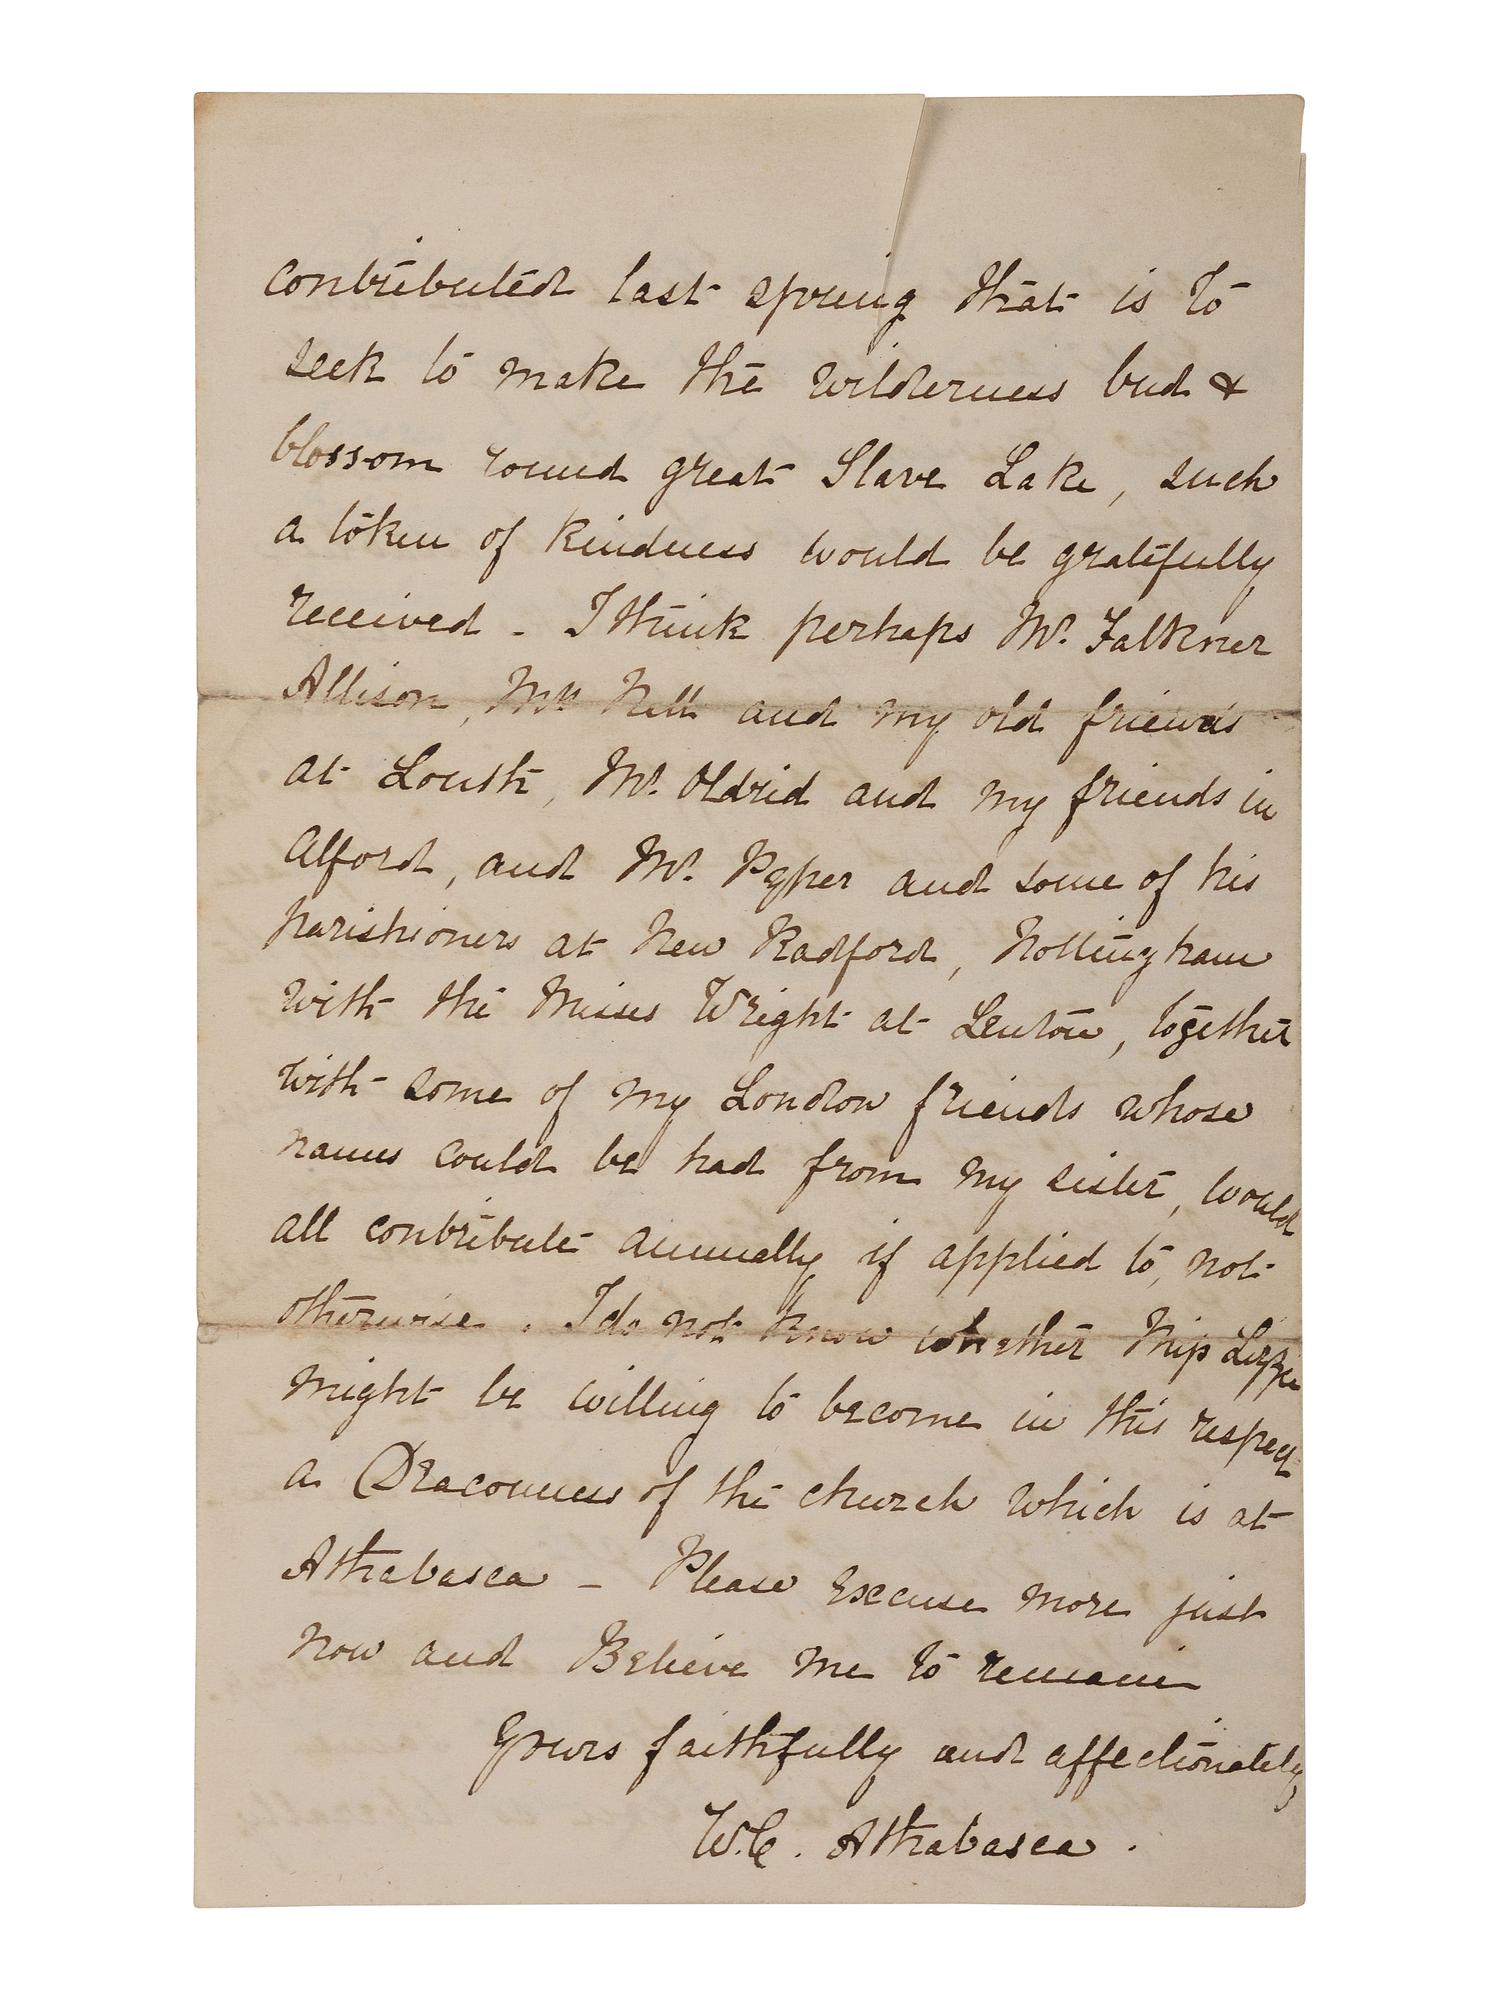 contributed last spring that is to
seek to make the wilderness bud &
blossom round great Slave Lake, such
a token of kindness would be gratefully
received - I think perhaps Mr. Falkner
Allison, and my old friends
at Louth, Mr. Oldrid and my friends in
Alford, and Mr. Pyper and some of his
parishioners at New Radford, Nottingham
with the Misses Wright at Lenton, together
with some of my London friends whose
names could be had from my sister, would
all contribute annually if applied to, not
otherwise. I do not know whether Miss
might be willing to become in this respect
a Deaconness of the church which is at
Athabasca - Please Excuse more just
now and Believe me to remain
Yours faithfully and affectionately
W.C. Athabasca.